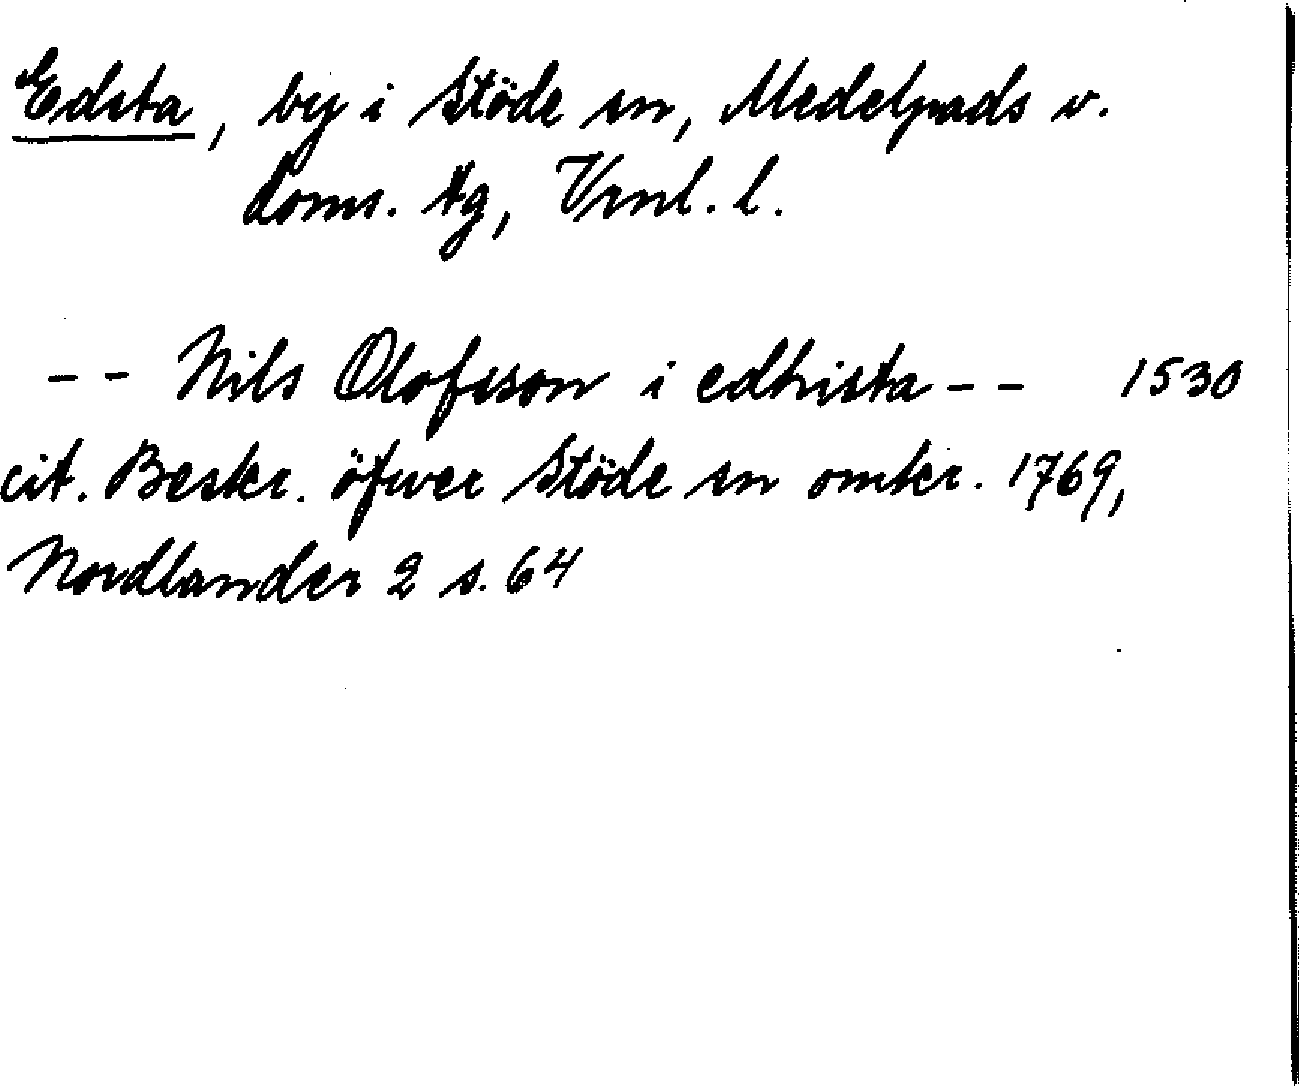 Edsta, by i Stöde sn, Medelpads v.
doms. tg, Vrnl. l.
-- Nils Olofsson i edhista -- 1530
cit. Beskr. öfver Stöde sn omkr. 1769,
Nordlander 2 s. 64